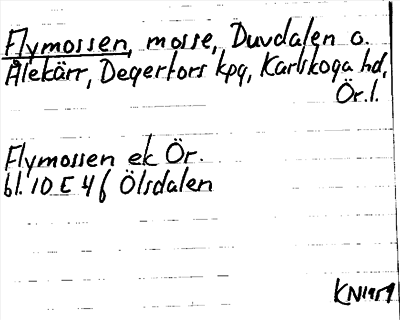 Flymossen, mosse, Duvdalen o.
Ålekärr, Degerfors kpg, Karlskoga hd,
Ör.l.
Flymossen ek Ör.
bl. 10 E 4 f Ölsdalen